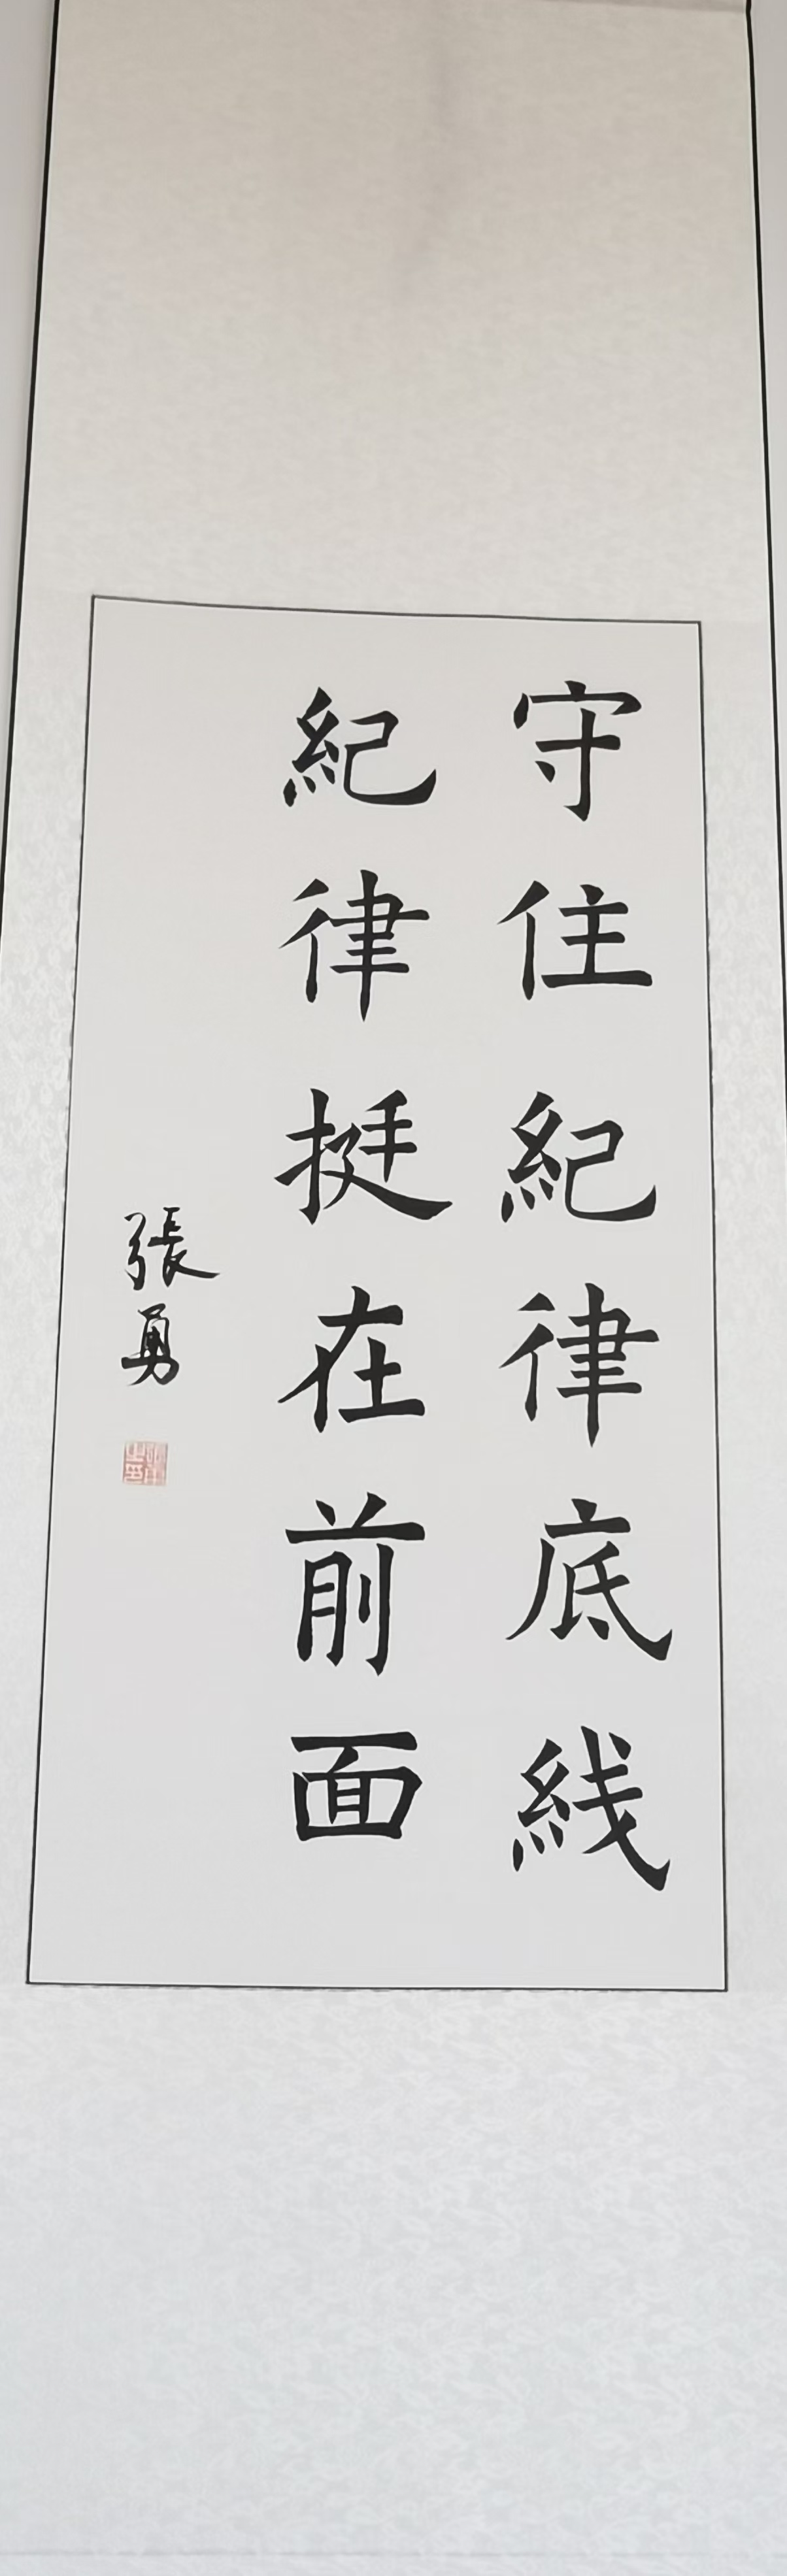 守住紀律底綫
紀律挺在前面
張勇